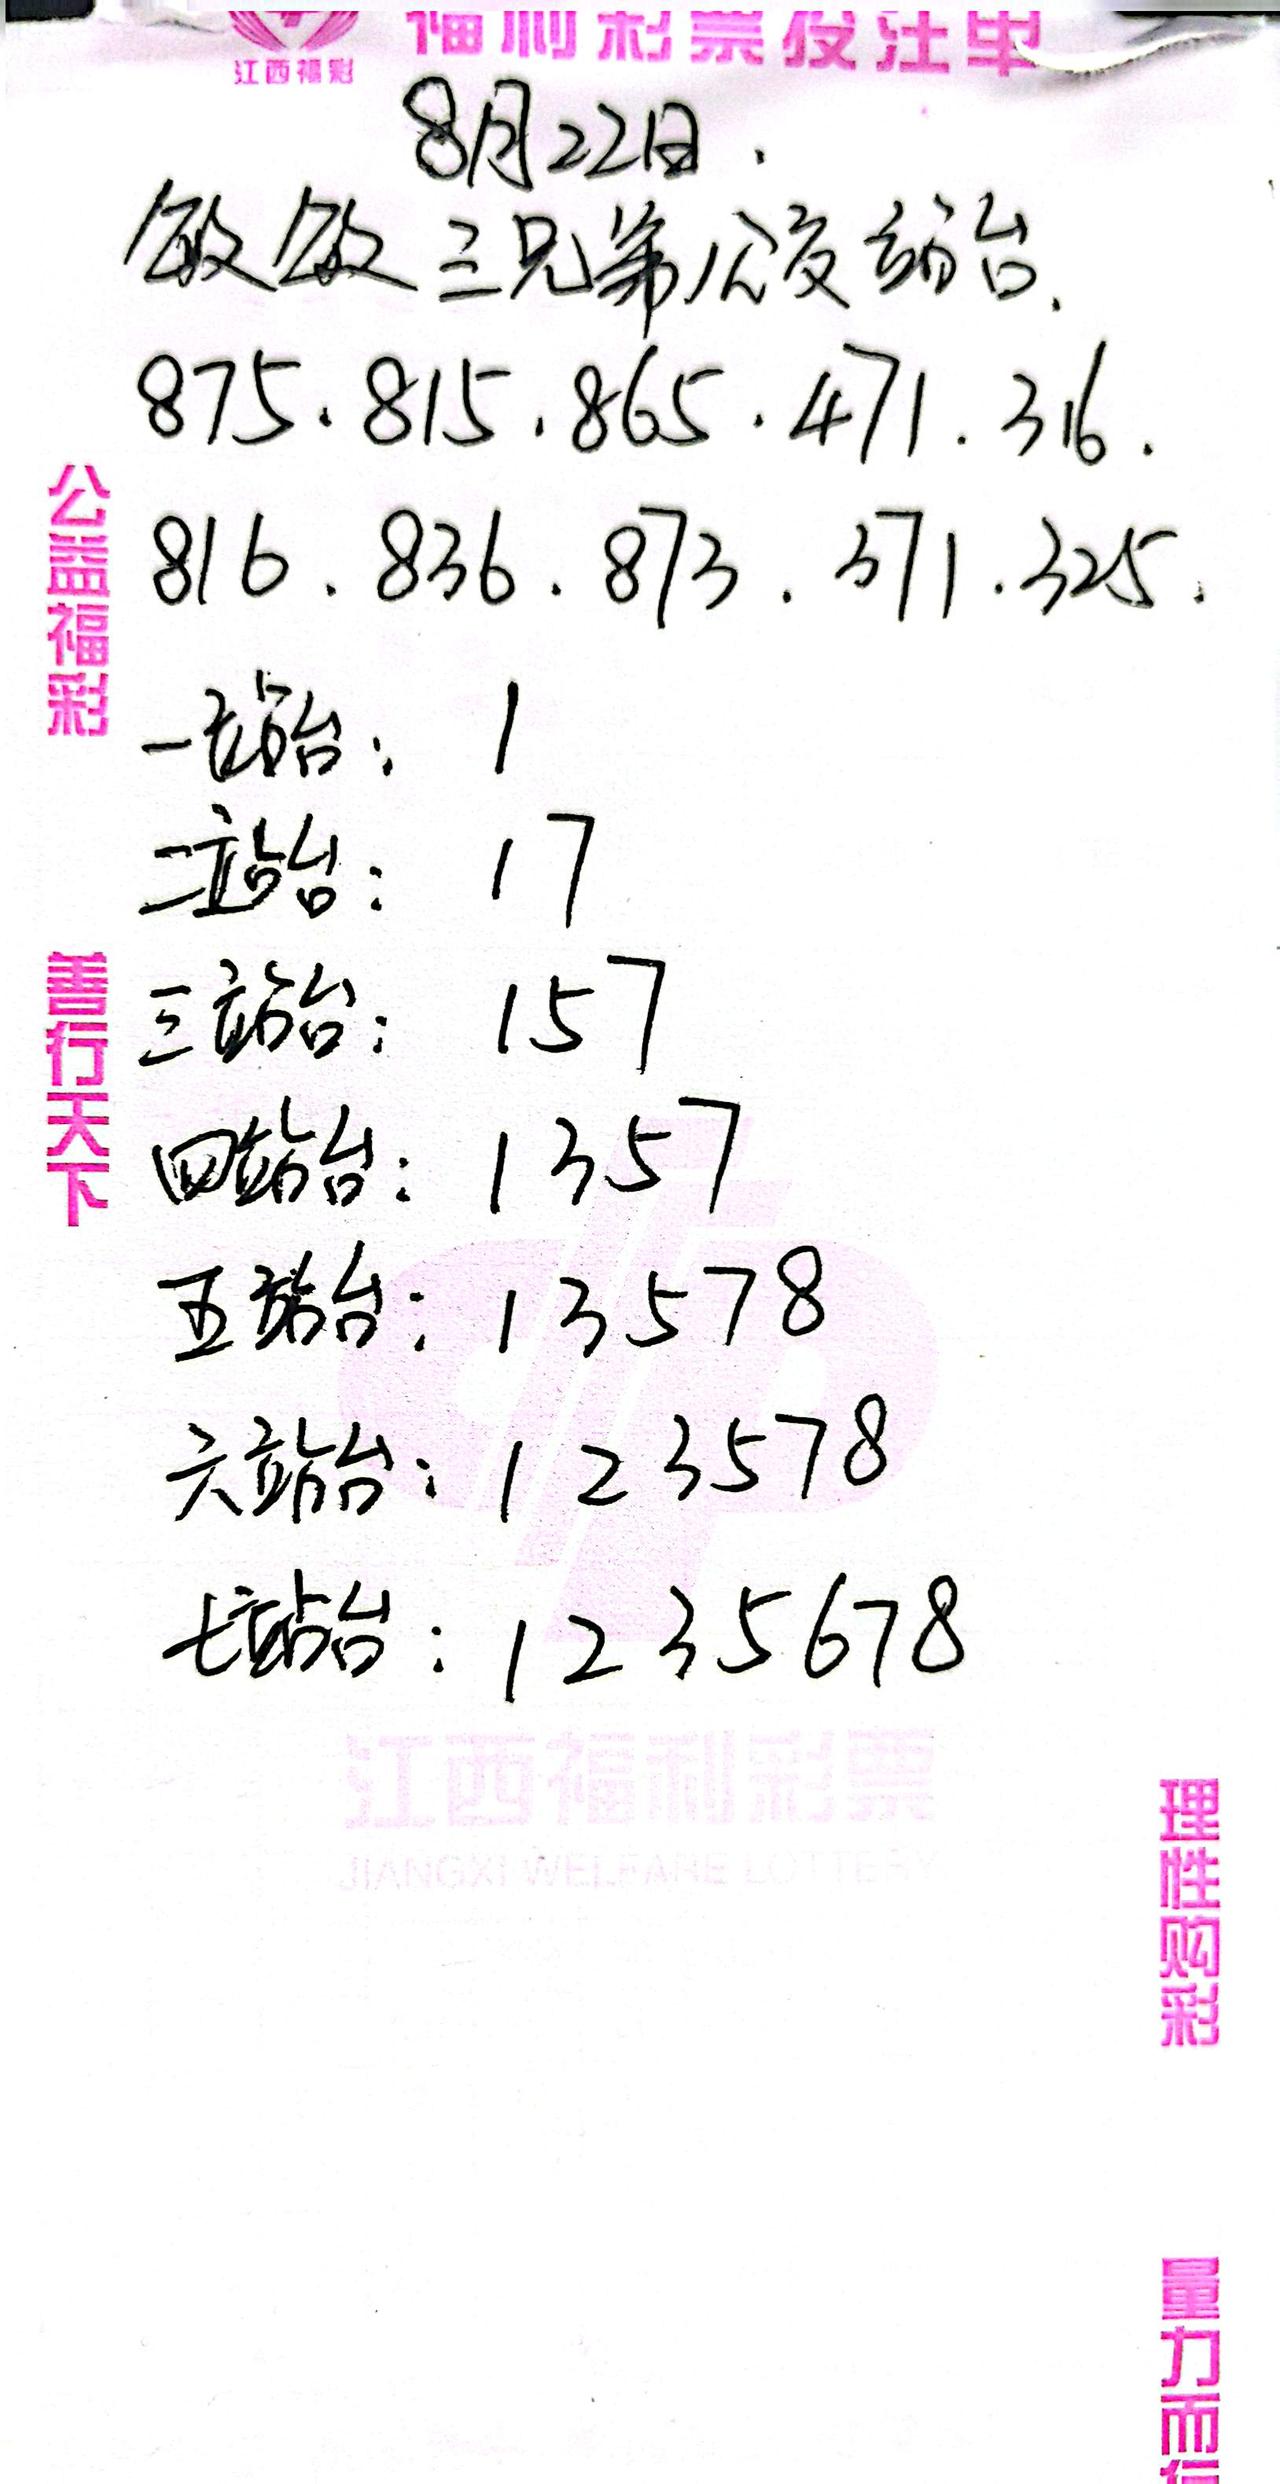 福利彩票投注单
江西福彩
8月22日.
敏敏三兄第公交站台.
875.815.865.471.316.
816.836.873.371.325.
一站台: 1
二站台: 17
三站台: 157
四站台: 1357
五站台: 13578
六站台: 123578
七站台: 1235678
公益福彩
善行天下
江西福利彩票
JIANGXI WELFARE LOTTERY
理性购彩
量力而行